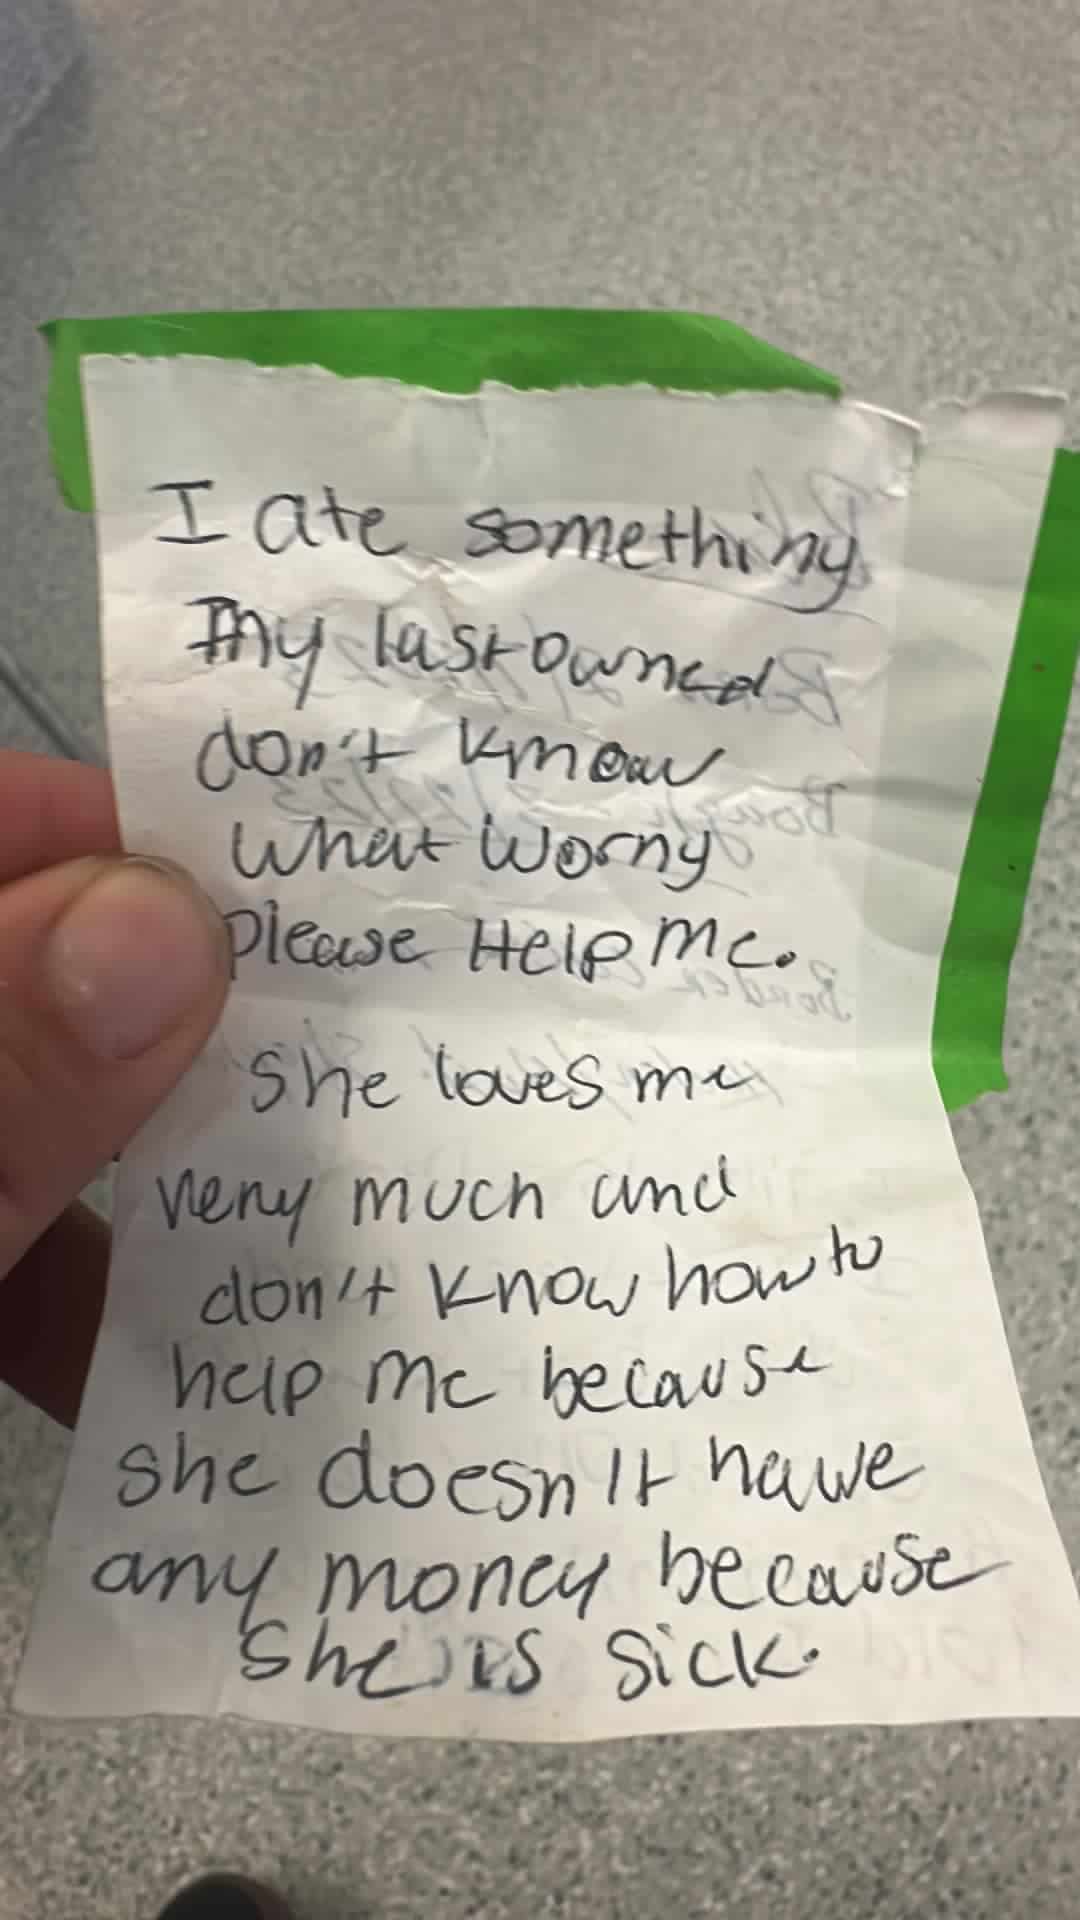 I ate something
my last owned
don't know
what worny
please Help me.
she loves me
very much and
don't know how to
help me because
she doesn't have
any money because
she is sick.